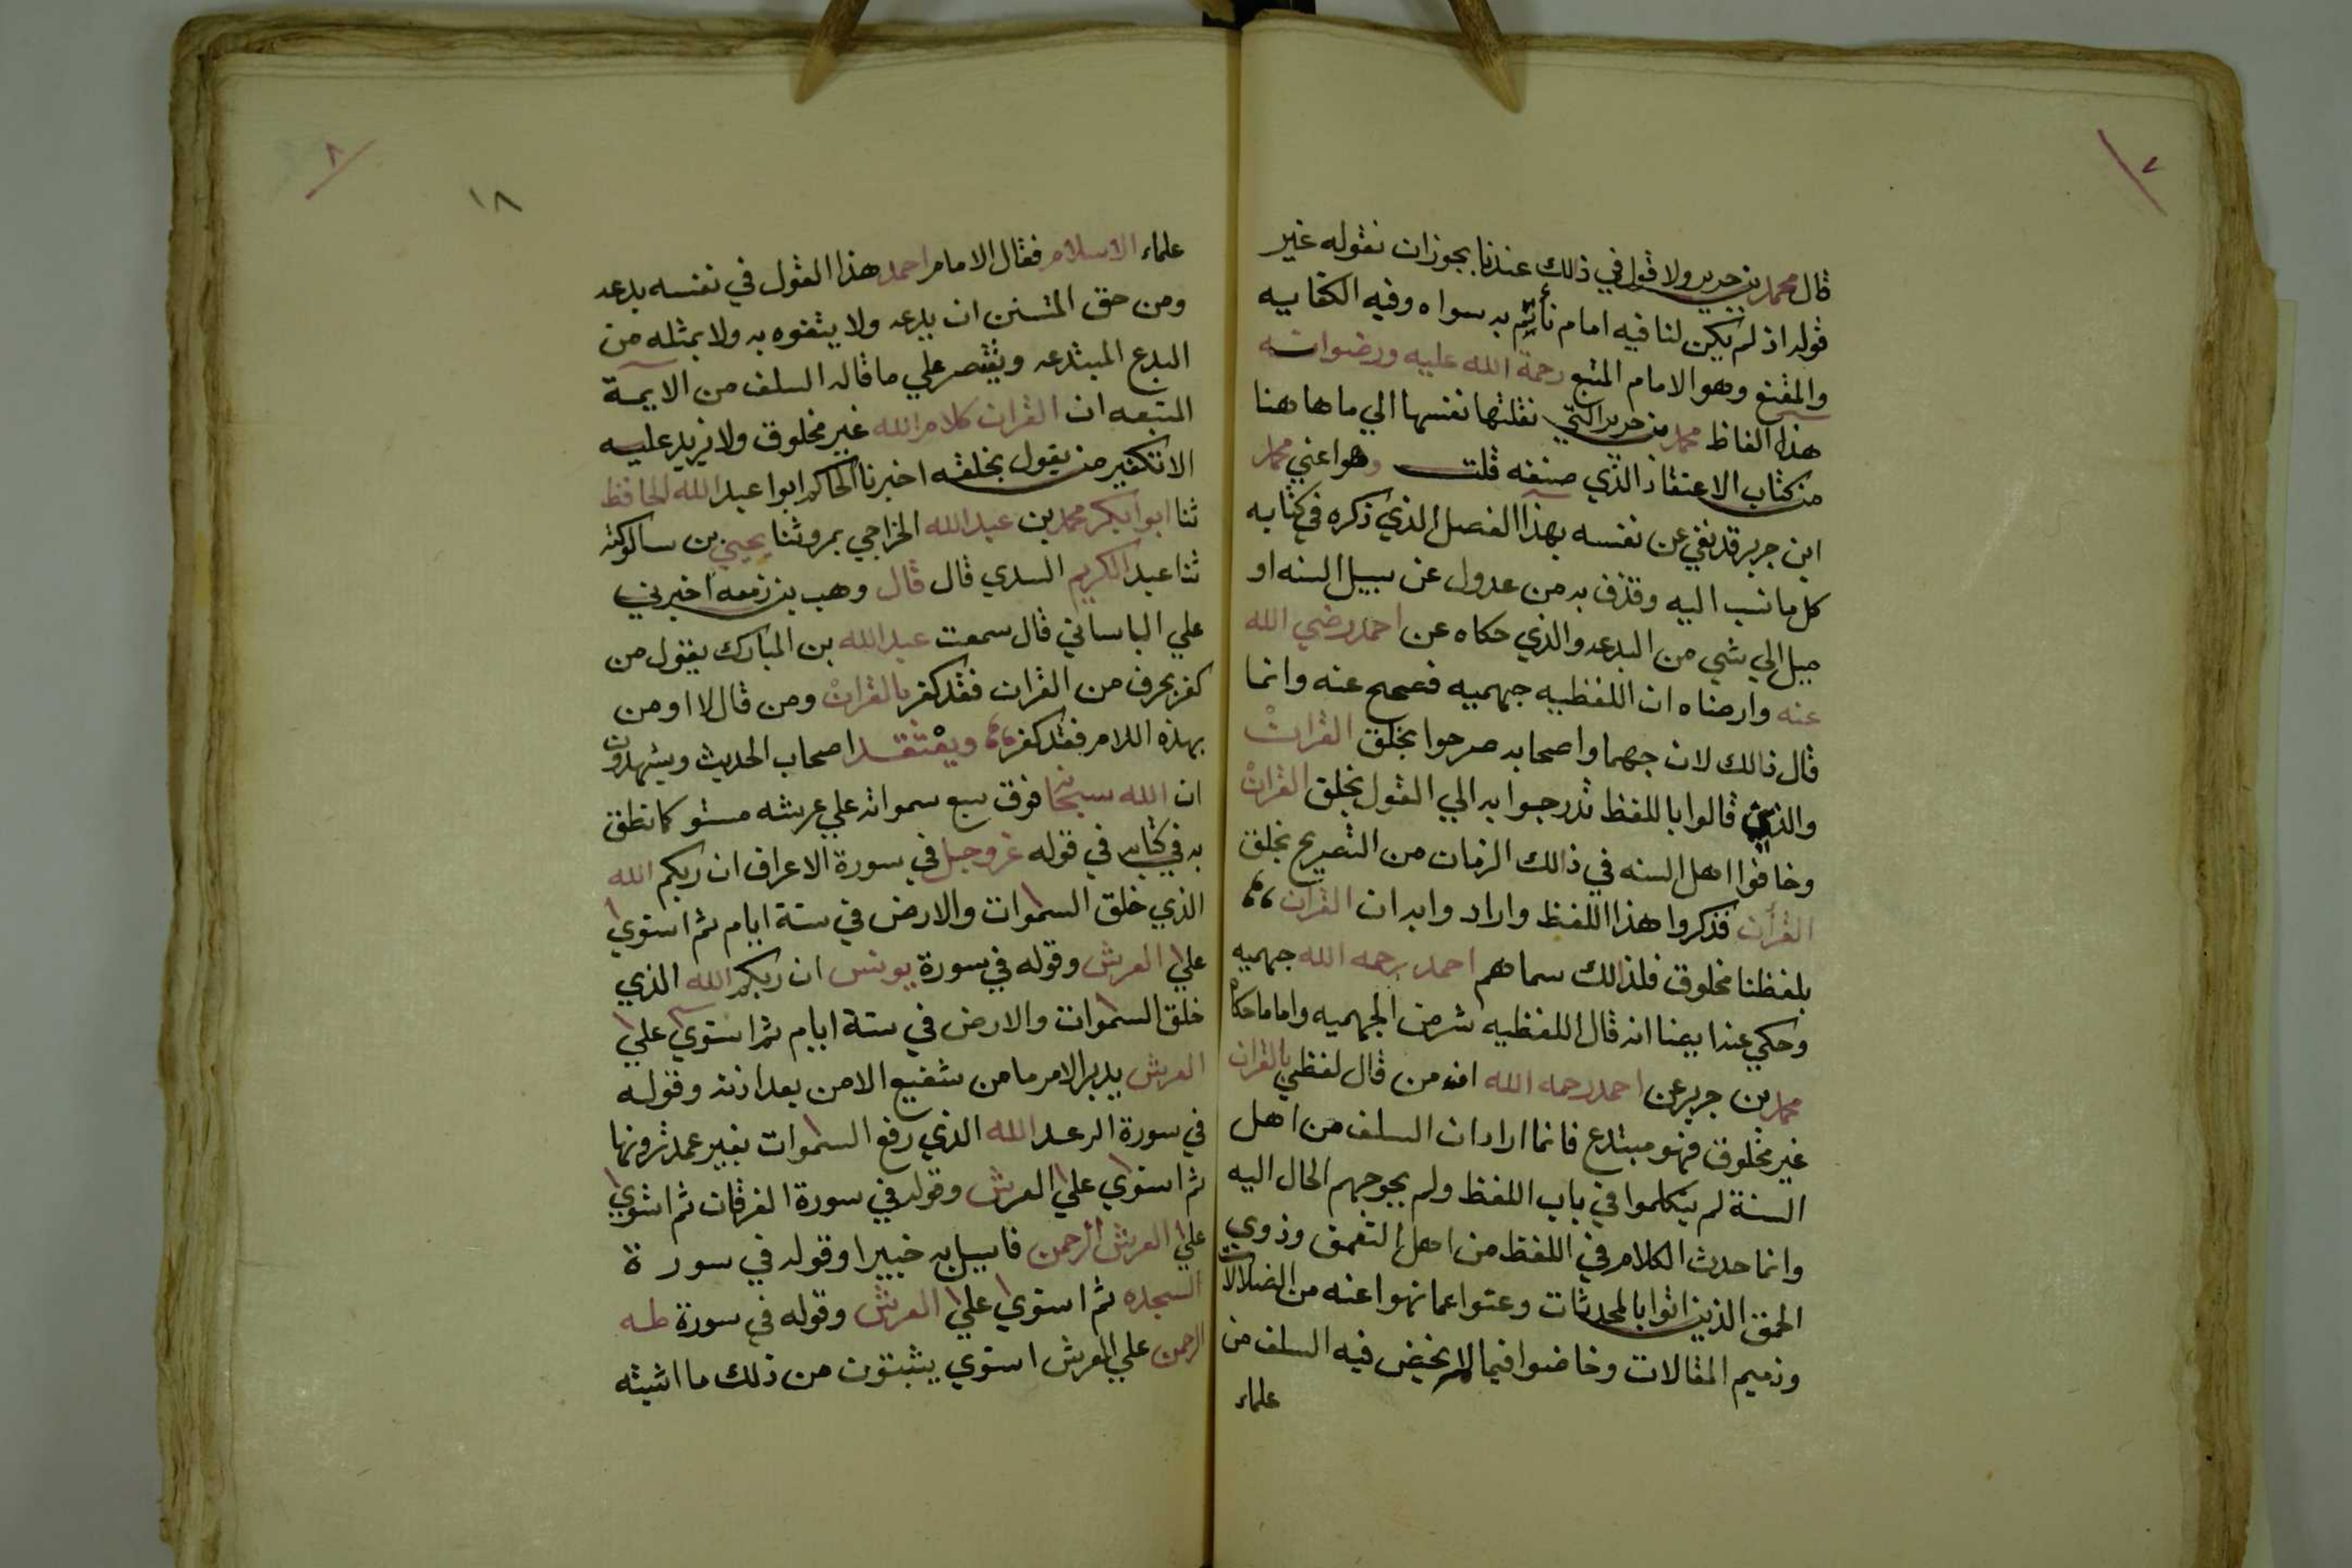 ٧
قال محمد بن جرير ولا قول في ذلك عندنا يجوز ان نقوله غير
قوله اذ لم يكن لنا فيه امام نأتم به سواه وفيه الكفايه
والمقنع وهو الامام المتبع رحمة الله عليه ورضوانه
هذا الفاظ محمد بن جرير التي نقلتها نفسها الي ما هاهنا
من كتاب الاعتقاد الذي صنفه قلت وهو اعني محمد
ابن جرير قد نفي عن نفسه بهذا الفصل الذي ذكره في كتابه
كل ما نسب اليه وقذف به من عدول عن سبيل السنه او
ميل الي شي من البدعه والذي حكاه عن احمد رضي الله
عنه وارضاه ان اللفظيه جهميه فصحيح عنه وانما
قال ذالك لان جهما واصحابه صرحوا بخلق القران
والذين قالوا باللفظ تدرجوا به الي القول بخلق القران
وخافوا اهل السنه في ذالك الزمان من التصريح بخلق
القران فذكروا هذا اللفظ واراد وابه ان القران
بلفظنا مخلوق فلذالك سماهم احمد رحمه الله جهميه
وحكي عنه ايضا انه قال اللفظيه شر من الجهميه واما ماحكاه
محمد بن جرير عن احمد رحمه الله انه من قال لفظي بالقران
غير مخلوق فهو مبتدع فانما اراد ان السلف من اهل
السنة لم يتكلموا في باب اللفظ ولم يحوجهم الحال اليه
وانما حدث الكلام في اللفظ من اهل التعمق وذوي
الحمق الذين اتوا بالمحدثات وعتوا عما نهوا عنه من الضلالات
وذميم المقالات وخاضوا فيما لم يخض فيه السلف من
علماء
٨
١٨
علماء الاسلام فقال الامام احمد هذا القول في نفسه بدعه
ومن حق المتسنن ان يدعه ولا يتفوه به ولا بمثله من
البدع المبتدعه ويقتصر علي ما قاله السلف من الايمة
المتبعه ان القران كلام الله غير مخلوق ولا يزيد عليه
الا تكفير من يقول بخلقه اخبرنا الحاكم ابوا عبد الله الحافظ
ثنا ابوا بكر محمد بن عبد الله الجراحي بمرو ثنا يحيي بن ساكوكته
ثنا عبد الكريم السدي قال قال وهب بن زمعه اخبرني
علي الباساني قال سمعت عبد الله بن المبارك يقول من
كفر بحرف من القران فقد كفر بالقران ومن قال لا اومن
بهذه اللام فقد كفر ويعتقد اصحاب الحديث ويشهدون
ان الله سبحانه فوق سبع سمواته علي عرشه مستو كما نطق
به في كتابه في قوله عز وجل في سورة الاعراف ان ربكم الله
الذي خلق السموات والارض في ستة ايام ثم استوي
علي العرش وقوله في سورة يونس ان ربكم الله الذي
خلق السموات والارض في ستة ايام ثم استوي علي
العرش يدبر الامر ما من شفيع الا من بعد اذنه وقوله
في سورة الرعد الله الذي رفع السموات بغير عمد ترونها
ثم استوي علي العرش وقوله في سورة الفرقان ثم استوي
علي العرش الرحمن فاسيل به خبيرا وقوله في سورة
السجده ثم استوي علي العرش وقوله في سورة طه
الرحمن علي العرش استوي يثبتون من ذلك ما اثبته